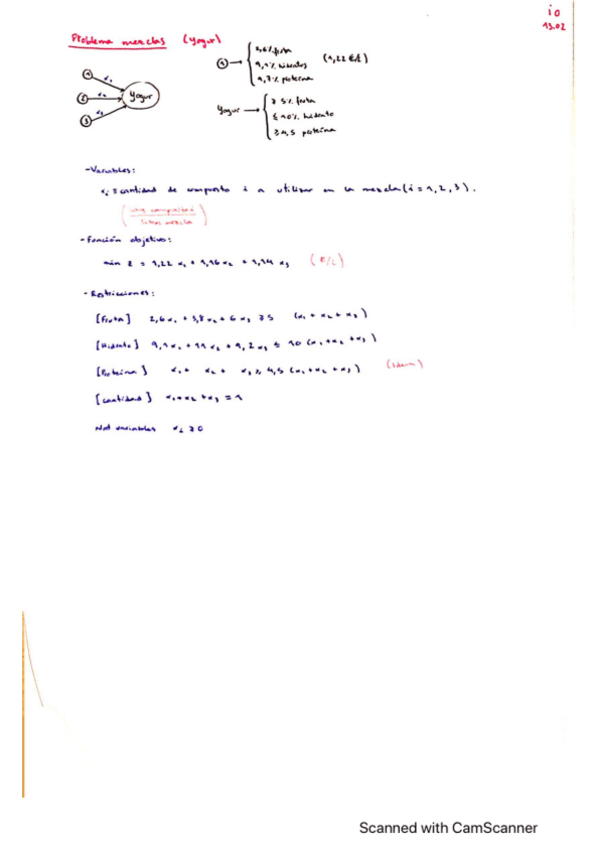 io
13.02
Problema mezclas (yogur)
1 2,6% fruta
9,1% hidratos (1,22 €/l)
4,7% proteina
1 x₁
2 x₂ yogur
3 x₃
Yogur ≥ 5% fruta
≤ 10% hidrato
≥ 4,5 proteina
-Variables:
xᵢ = cantidad de compuesto i a utilizar en la mezcla (i = 1, 2, 3).
litros mezcla
-Función objetivo:
min z = 1,22 x₁ + 1,16 x₂ + 1,14 x₃ (€/L)
-Restricciones:
[Fruta] 2,6 x₁ + 3,8 x₂ + 6 x₃ ≥ 5 (x₁ + x₂ + x₃)
[Hidrato] 9,1 x₁ + 11 x₂ + 9,2 x₃ ≤ 10 (x₁ + x₂ + x₃)
[Proteina] x₁ + x₂ + x₃ ≥ 4,5 (x₁ + x₂ + x₃) (Idem)
[cantidad] x₁ + x₂ + x₃ = 1
Nat variables xᵢ ≥ 0
Scanned with CamScanner